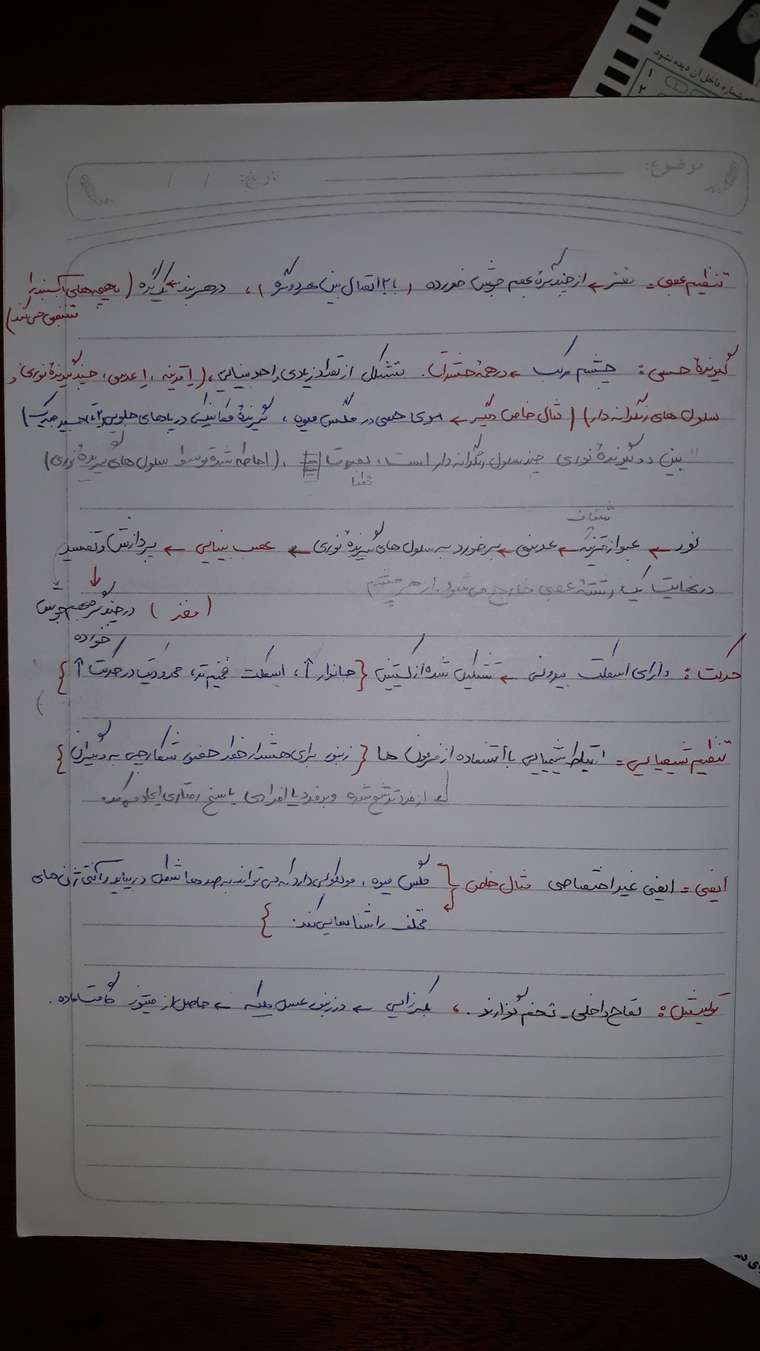 شماره داخل آن دیده نشود
۱
۲
موضوع:
تاریخ: / /
تنظیم عصبی = مغز ← از چند گره بهم جوش خورده (با ۲ اتصال بین هر دو گره)، در هر بند یک گره (ماهیچه‌های آن بند را
تنظیم می‌کند)
گیرندهٔ حسی: چشم مرکب ← در همهٔ حشرات. تشکل از تعداد زیادی واحد بینایی، (یک قرنیه، یک عدسی، چند گیرندهٔ نوری و
سلول های رنگدانه دار) (مثال خاص دیگر ← موی حسی در مگس میوه، گیرندهٔ مکانیکی در پاهای جلویی جیرجیرک)
بین دو گیرندهٔ نوری چند سلول رنگدانه دار است، بصورت، (احاطه شده توسط سلول های گیرندهٔ نوری)
شفاف
نور ← عبور از قرنیه ← عدسی ← برخورد به سلول های گیرندهٔ نوری ← عصب بینایی ← پردازش و تفسیر
در نهایت یک رشتهٔ عصبی خارج می‌شود. از هر چشم
(مغز) در چند گره بهم جوش
خورده
حرکت: دارای اسکلت بیرونی ← تشکیل شده از کیتین {جانوار ↑، اسکلت ضخیم تر، محدودیت در حرکت ↑}
تنظیم شیمیایی = ارتباط شیمیایی با استفاده از فرمون ها {زنبور برای هشدار خطر حضور شکارچی به دیگران}
از فرد ترشح شده و بر فرد یا افرادی پاسخ رفتاری ایجاد می‌کند
ایمنی = ایمنی غیر اختصاصی مثال خاص { مگس میوه، مولکولی دارد که می تواند به صدها شکل در بیاید و آنتی ژن های
مختلف را شناسایی کند. }
تولیدمثل: لقاح داخلی - تخم گذارند.، بکرزایی ← در زنبور عسل ملکه ← حاصل از میتوز گامت ماده.